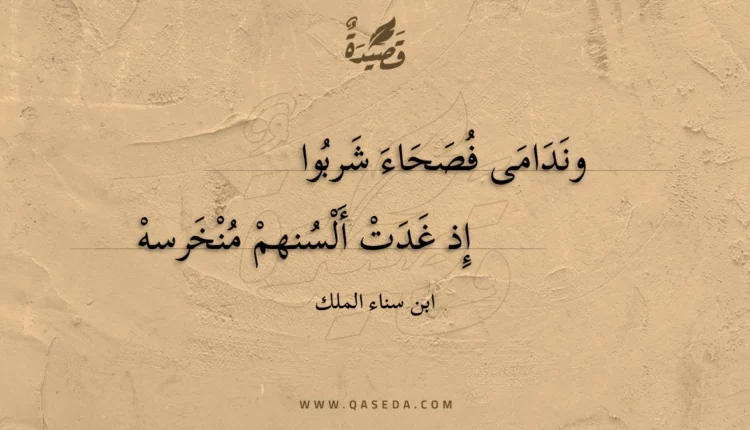 قَصِيدَةٌ
ونَدَامَى فُصَحَاءَ شَربُوا
إِذ غَدَتْ أَلْسُنهمْ مُنْخَرسهْ
ابن سناء الملك
WWW.QASEDA.COM